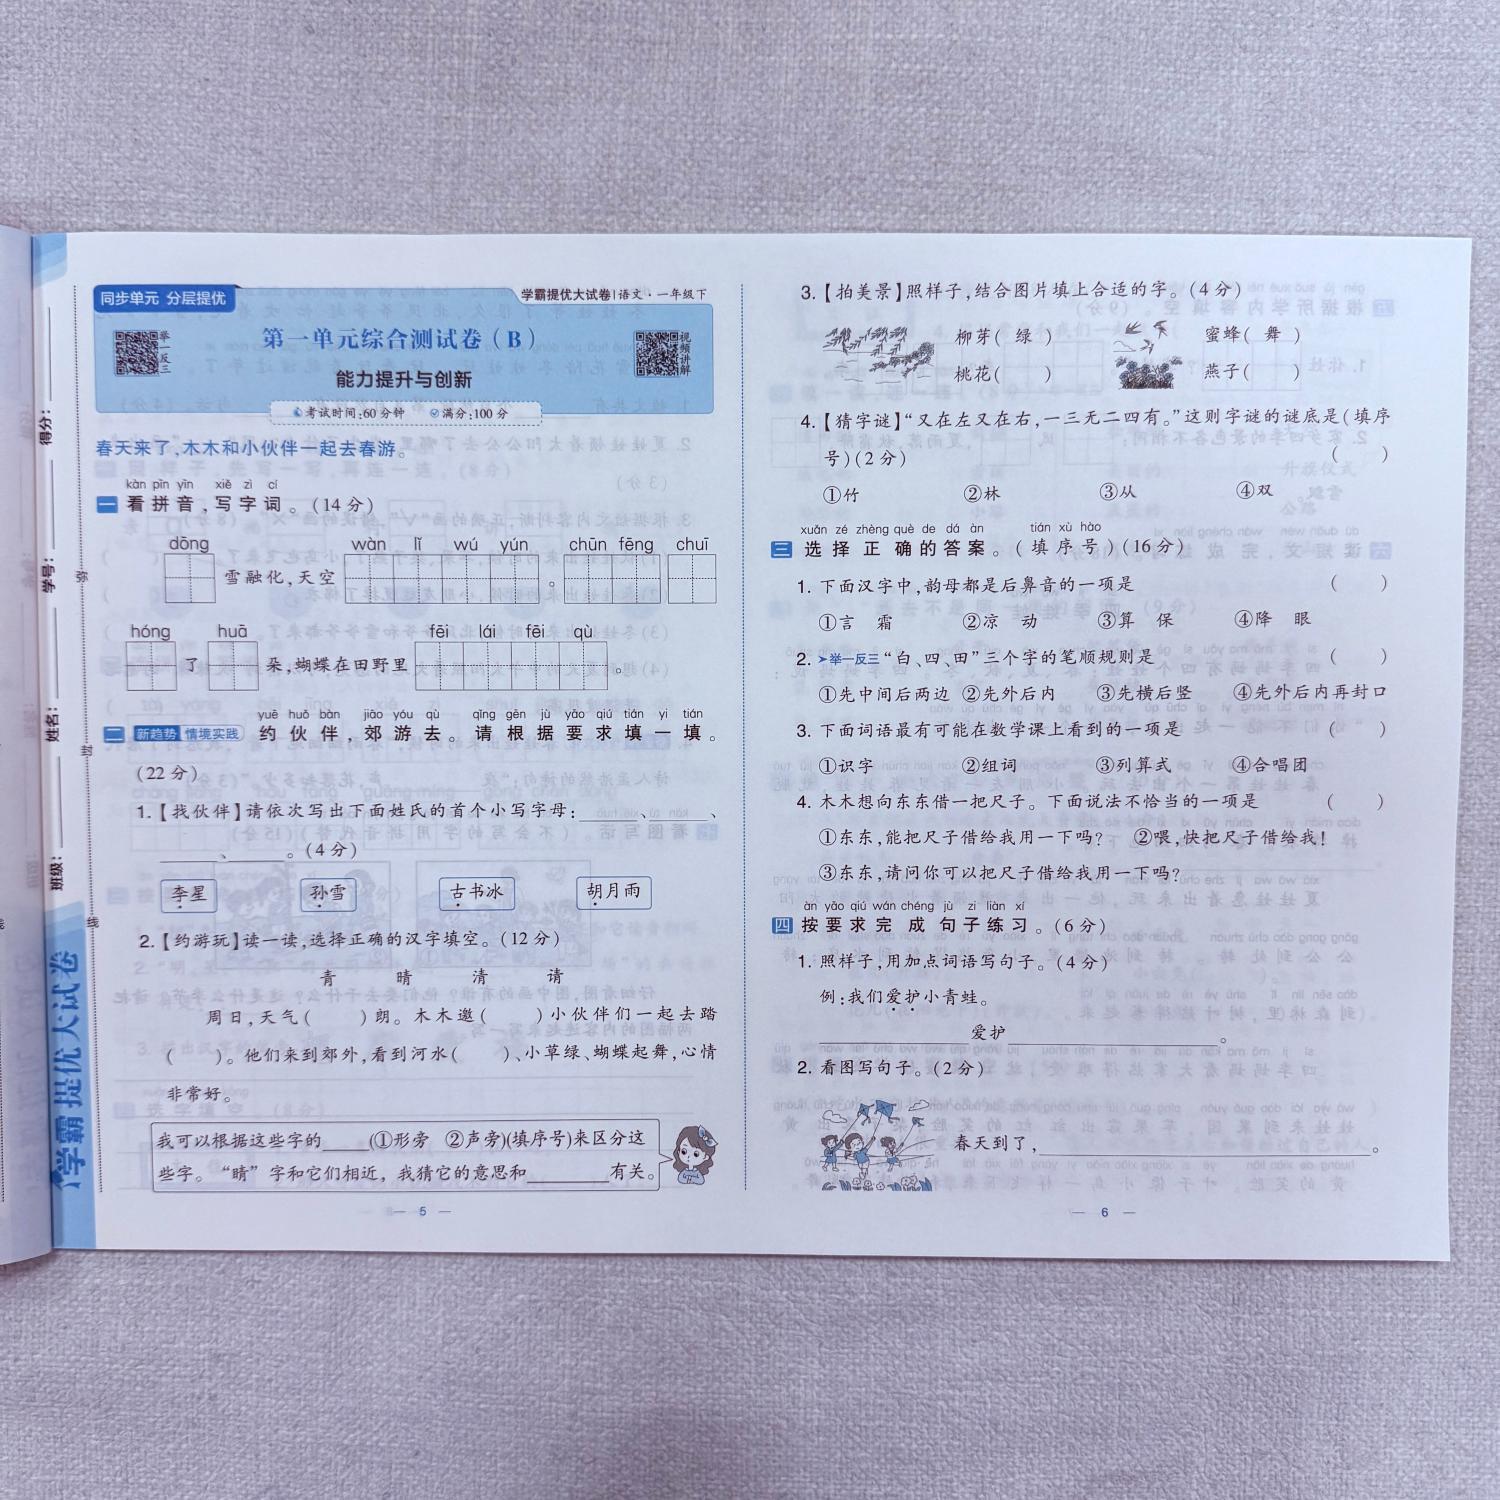 同步单元 分层提优
学霸提优大试卷|语文·一年级下
举一反三
第一单元综合测试卷(B)
视频讲解
能力提升与创新
考试时间:60分钟 满分:100分
春天来了,木木和小伙伴一起去春游。
kàn pīn yīn xiě zì cí
一 看拼音,写字词。(14分)
dōng wàn lǐ wú yún chūn fēng chuī
雪融化,天空 。
hóng huā fēi lái fēi qù
了 朵,蝴蝶在田野里 。
yuē huǒ bàn jiāo yóu qù qīng gēn jù yāo qiú tián yi tián
二 新趋势 情境实践 约伙伴,郊游去。请根据要求填一填。
(22分)
1.【找伙伴】请依次写出下面姓氏的首个小写字母:______、______、
______、______。(4分)
李星 孙雪 古书冰 胡月雨
2.【约游玩】读一读,选择正确的汉字填空。(12分)
青 晴 清 请
周日,天气( )朗。木木邀( )小伙伴们一起去踏
( )。他们来到郊外,看到河水( )、小草绿、蝴蝶起舞,心情
非常好。
我可以根据这些字的____(①形旁 ②声旁)(填序号)来区分这
些字。“睛”字和它们相近,我猜它的意思和________有关。
— 5 —
3.【拍美景】照样子,结合图片填上合适的字。(4分)
柳芽( 绿 ) 蜜蜂( 舞 )
桃花( ) 燕子( )
4.【猜字谜】“又在左又在右,一三无二四有。”这则字谜的谜底是(填序
号)(2分) ( )
①竹 ②林 ③从 ④双
xuǎn zé zhèng què de dá àn tián xù hào
三 选择正确的答案。(填序号)(16分)
1. 下面汉字中,韵母都是后鼻音的一项是 ( )
①言 霜 ②凉 动 ③算 保 ④降 眼
2. 举一反三 “白、四、田”三个字的笔顺规则是 ( )
①先中间后两边 ②先外后内 ③先横后竖 ④先外后内再封口
3. 下面词语最有可能在数学课上看到的一项是 ( )
①识字 ②组词 ③列算式 ④合唱团
4. 木木想向东东借一把尺子。下面说法不恰当的一项是 ( )
①东东,能把尺子借给我用一下吗? ②喂,快把尺子借给我!
③东东,请问你可以把尺子借给我用一下吗?
àn yāo qiú wán chéng jù zi liàn xí
四 按要求完成句子练习。(6分)
1. 照样子,用加点词语写句子。(4分)
例:我们爱护小青蛙。
____________爱护________________。
2. 看图写句子。(2分)
春天到了,________________________。
— 6 —
得分:
学号:
姓名:
班级:
密
封
线
学霸提优大试卷